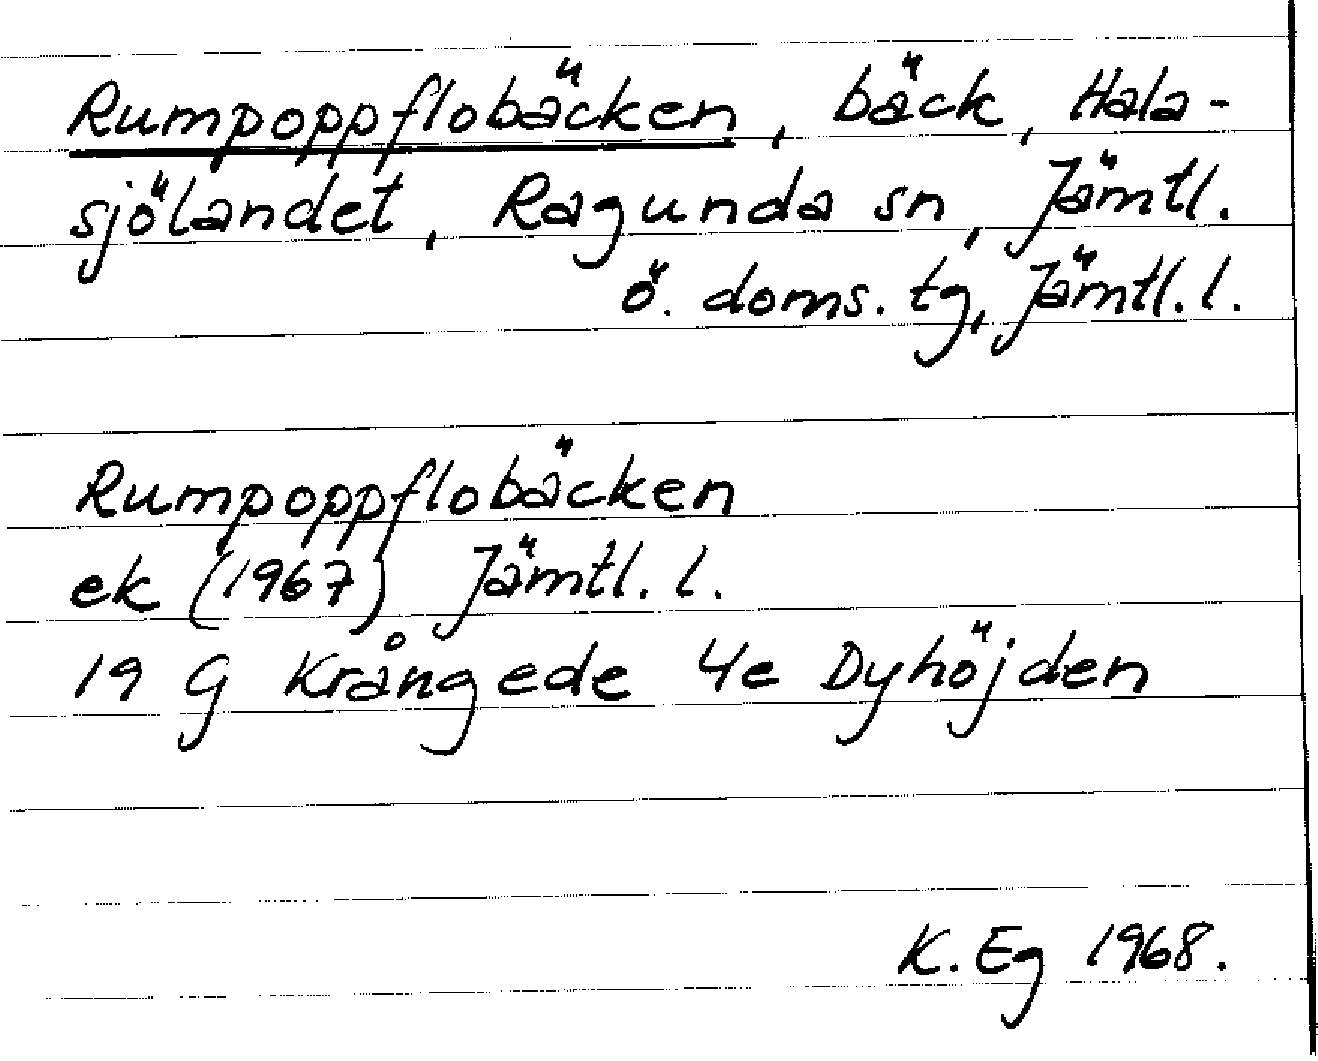 Rumpoppflobäcken, bäck, Hala-
sjölandet, Ragunda sn, Jämtl.
ö. doms. tg, Jämtl. l.
Rumpoppflobäcken
ek (1967) Jämtl. l.
19 G Krångede 4e Dyhöjden
K. Eg 1968.